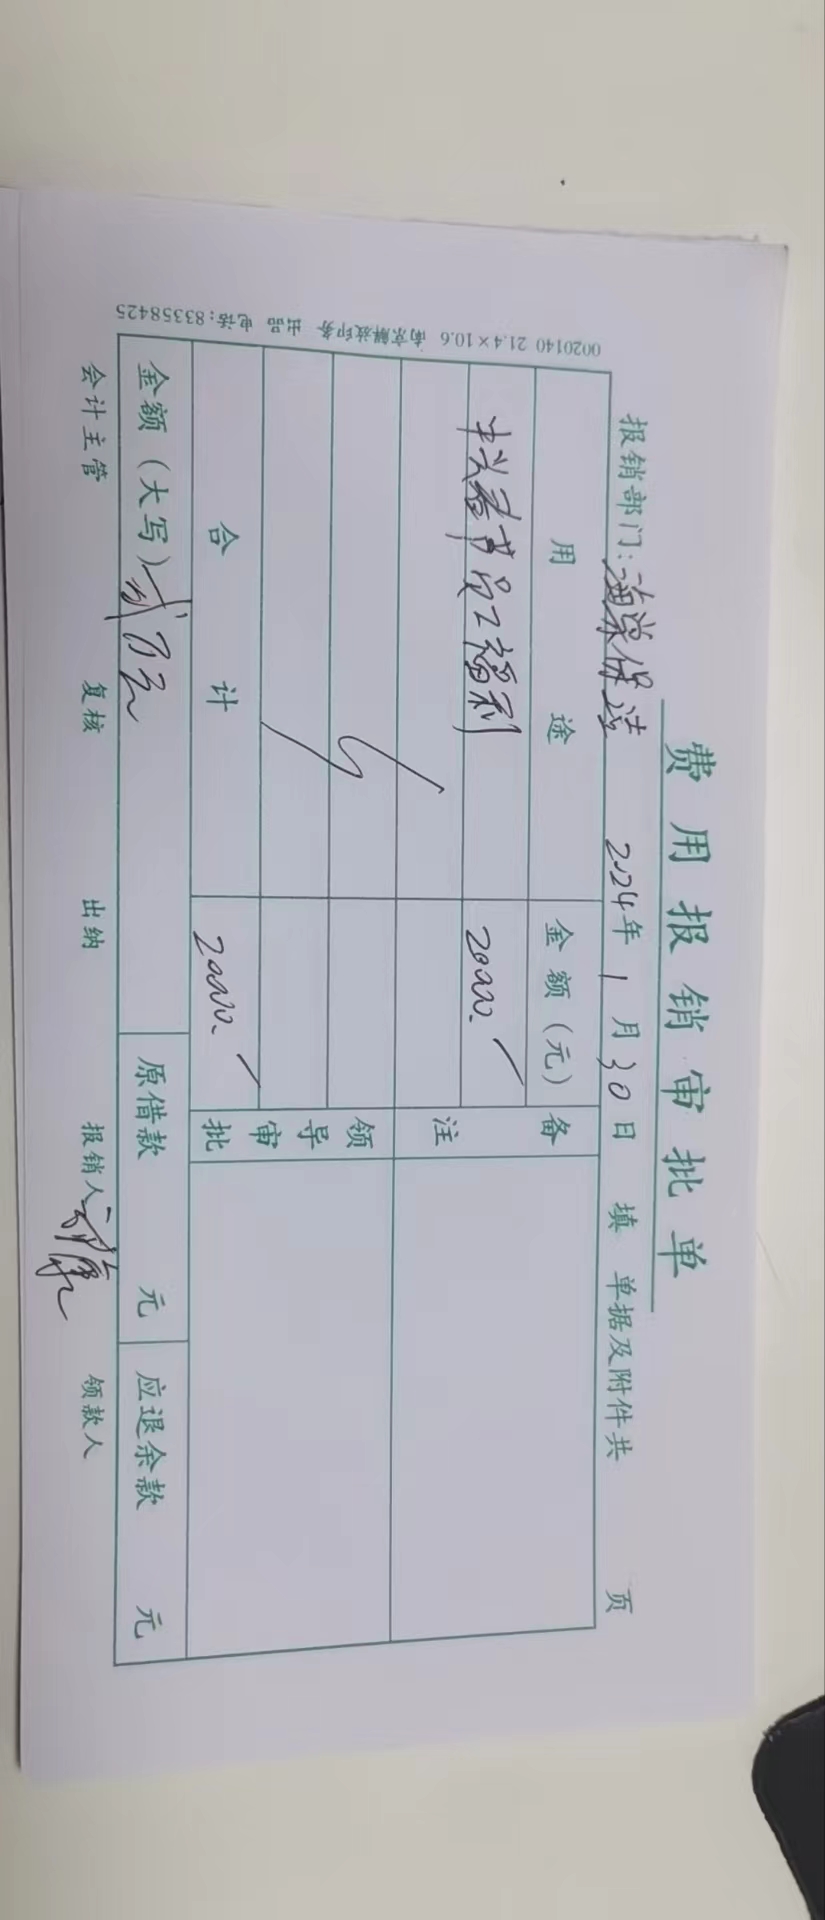 费用报销审批单
报销部门: 2024年1月30日填 单据及附件共 页
用途 金额(元) 备注
春节员工福利 20000.
领导审批
合计 20000.
金额(大写) 贰万元 原借款 元 应退余款 元
会计主管 复核 出纳 报销人 领款人
0020140 21.4×10.6 南京解放印务 出品 电话:83358425